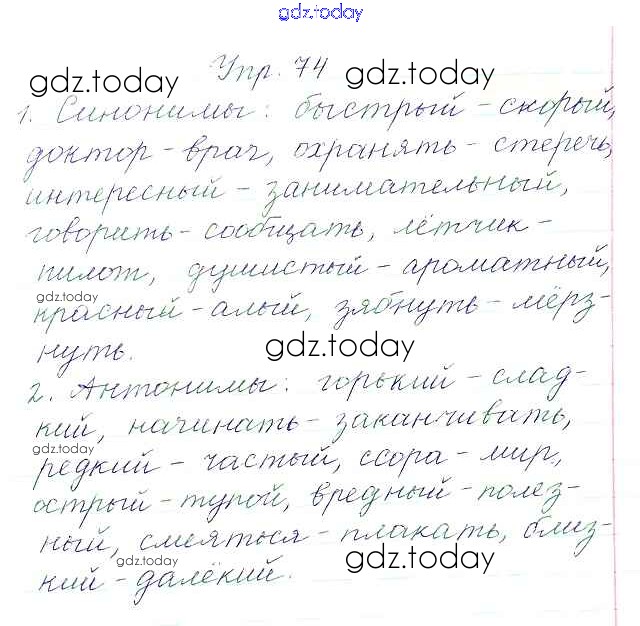 gdz.today
Упр. 74
gdz.today gdz.today
1. Синонимы: быстрый - скорый,
доктор - врач, охранять - стеречь,
интересный - занимательный,
говорить - сообщать, лётчик -
пилот, душистый - ароматный,
gdz.today
красный - алый, зябнуть - мёрз-
нуть.
gdz.today
2. Антонимы: горький - слад-
кий, начинать - заканчивать,
gdz.today
редкий - частый, ссора - мир,
острый - тупой, вредный - полез-
ный, смеяться - плакать, близ-
gdz.today gdz.today
кий - далёкий.